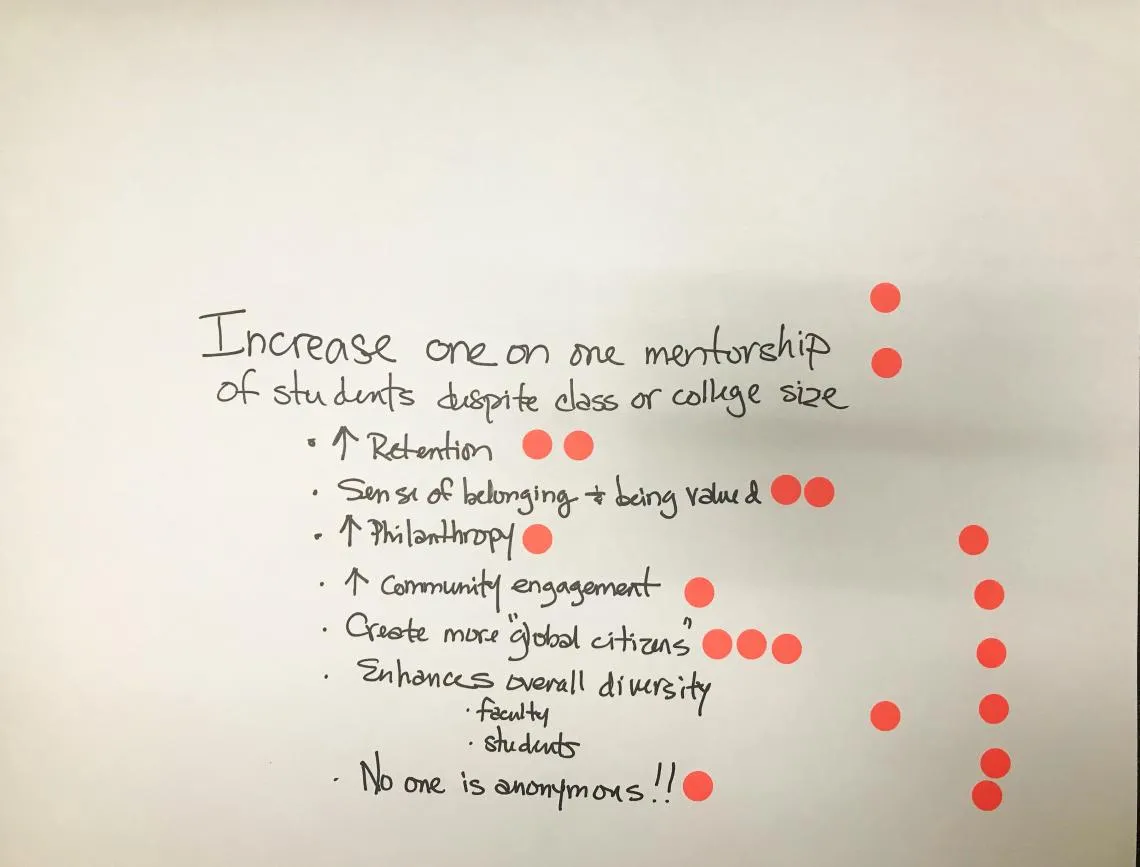 Increase one on one mentorship
of students duspite class or college size
· ↑ Retention
· Sense of belonging + being valued
· ↑ Philanthropy
· ↑ Community engagement
· Create more "global citizens"
· Enhances overall diversity
· faculty
· students
· No one is anonymous!!